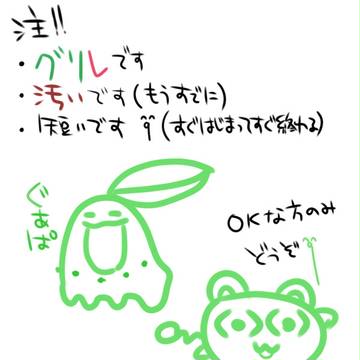 注!!
・グリレです
・汚いです(もうすでに)
・短いです (すぐはじまってすぐ終わる)
ぐぁぱ
OKな方のみ
どうぞ